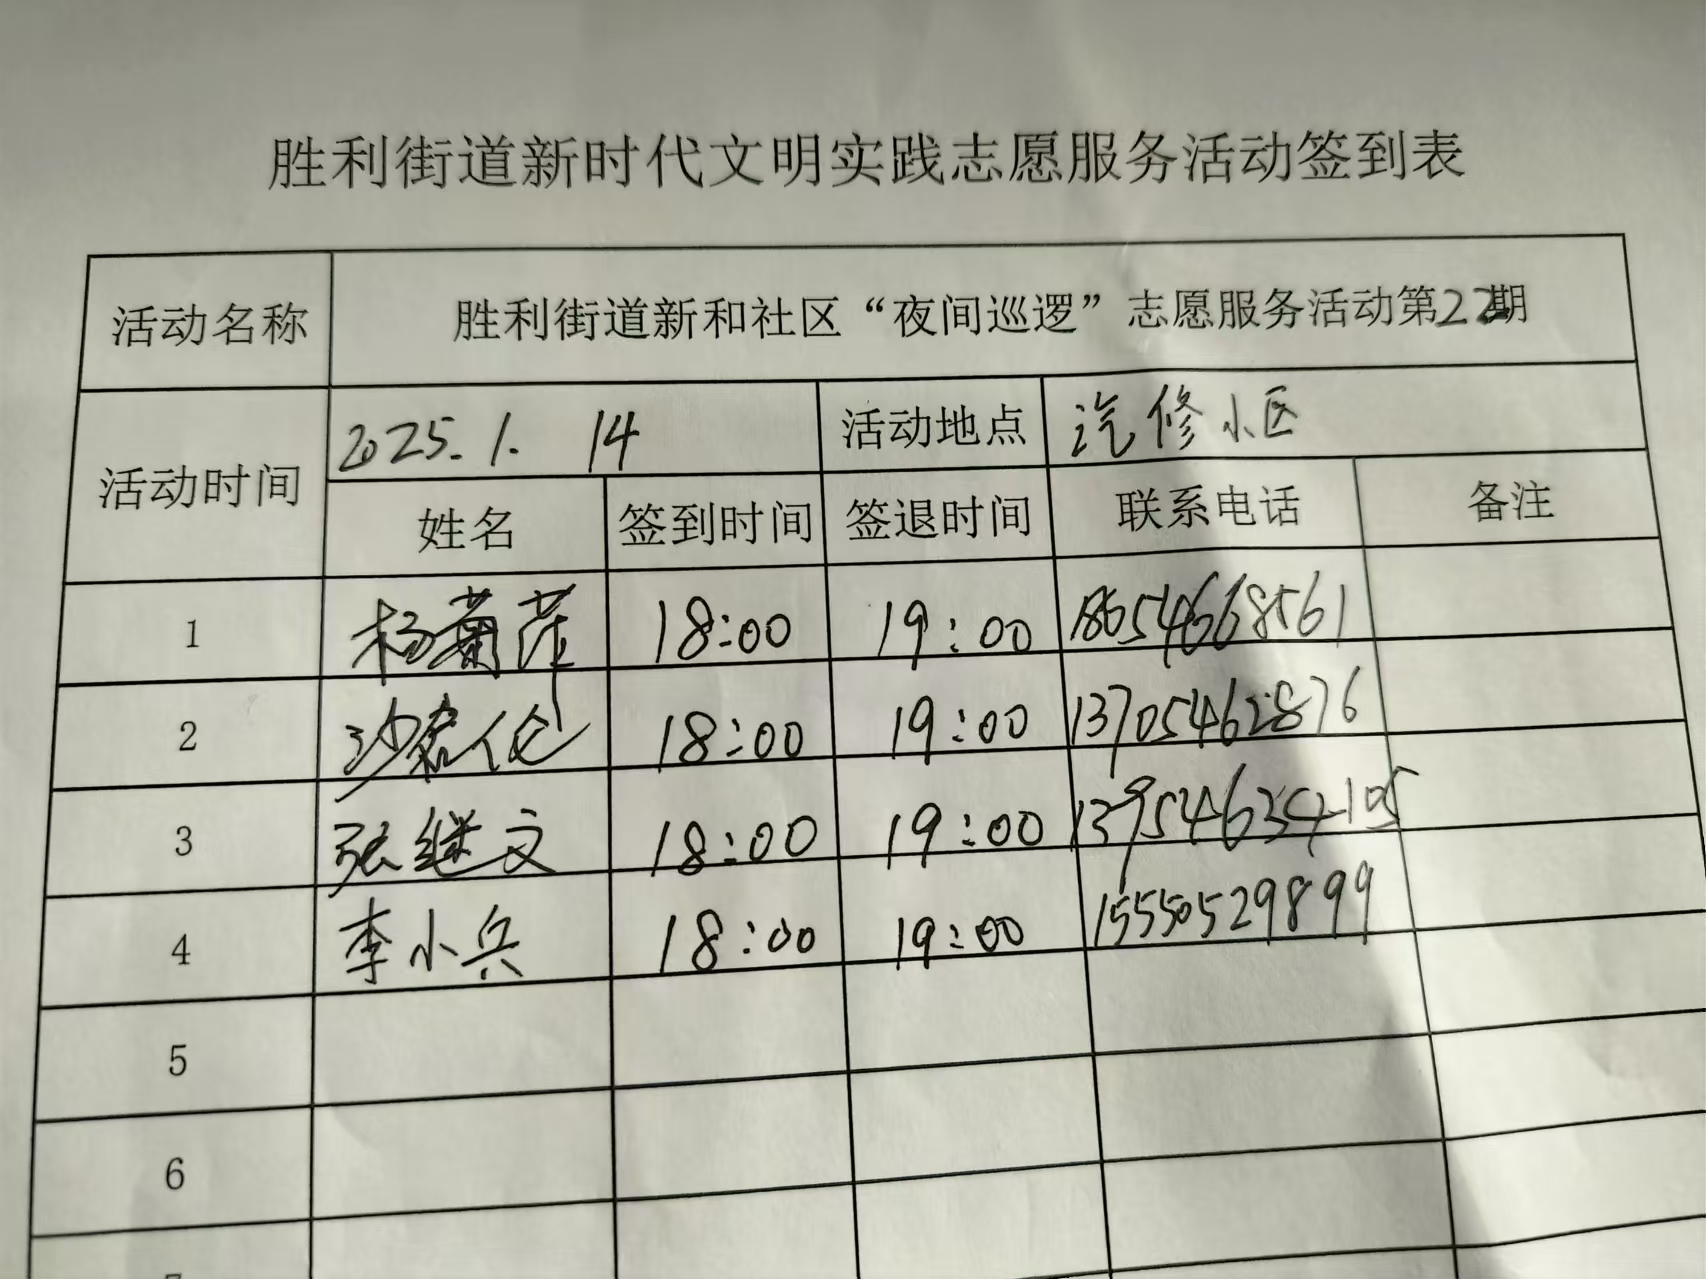 胜利街道新时代文明实践志愿服务活动签到表
活动名称 胜利街道新和社区“夜间巡逻”志愿服务活动第22期
活动时间 2025.1. 14 活动地点 汽修小区
姓名 签到时间 签退时间 联系电话 备注
1 杨菊萍 18:00 19:00 18654668561
2 沙君伦 18:00 19:00 13705462876
3 张继文 18:00 19:00 13954634105
4 李小兵 18:00 19:00 15550529899
5
6